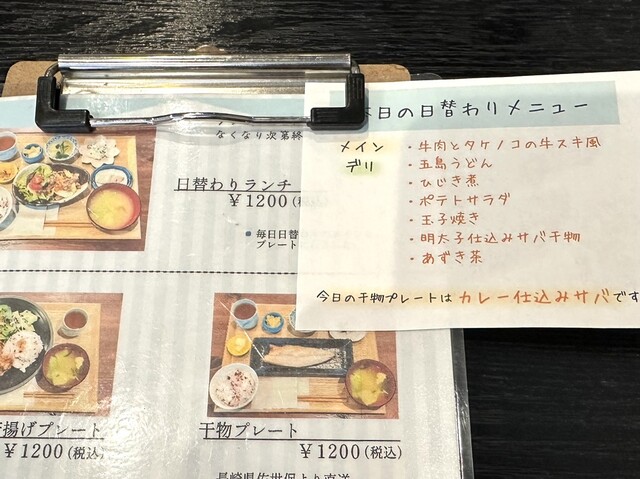 日の日替わりメニュー
メイン ・牛肉とタケノコの牛スキ風
デリ ・五島うどん
・ひじき煮
・ポテトサラダ
・玉子焼き
・明太子仕込みサバ干物
・あずき茶
今日の干物プレートは カレー仕込みサバです
なくなり次第終
日替わりランチ
¥1200(税込)
毎日日替
プレート
揚げプレート
¥1200(税込)
干物プレート
¥1200(税込)
長崎県佐世保より直送